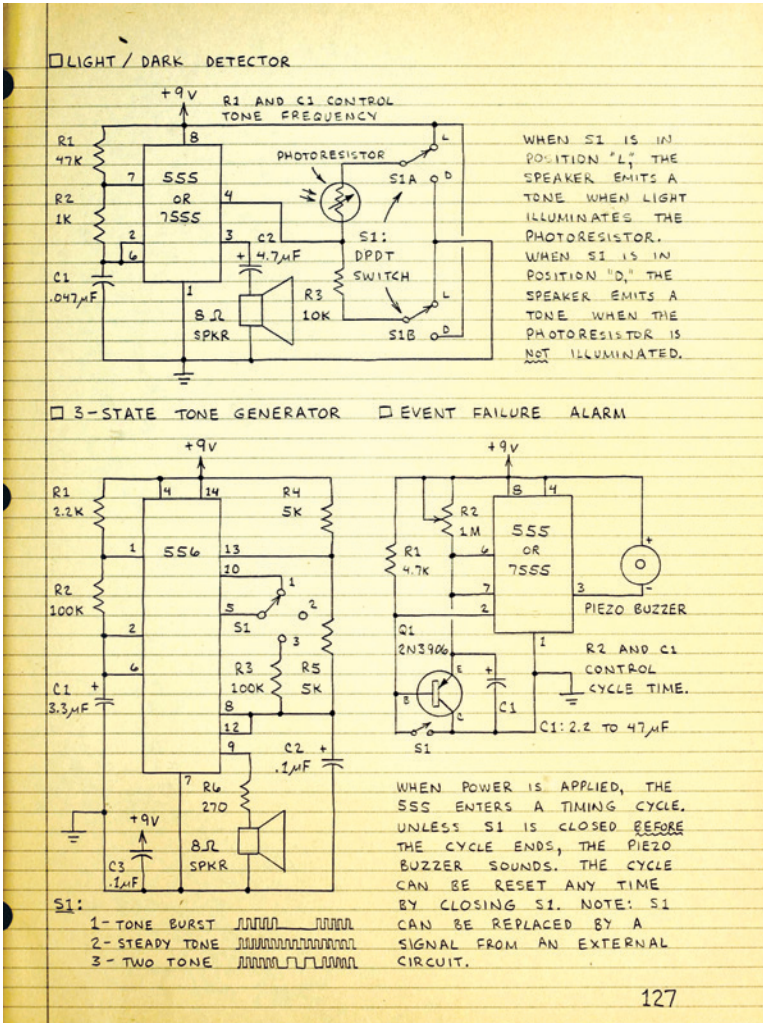 LIGHT / DARK DETECTOR
+9V
R1 AND C1 CONTROL
TONE FREQUENCY
R1
47K
R2
1K
C1
.047µF
8
7
555
OR
7555
4
2
6
3
1
C2
4.7µF
+
8Ω
SPKR
R3
10K
PHOTORESISTOR
L
S1A
D
S1:
DPDT
SWITCH
L
S1B
D
WHEN S1 IS IN
POSITION "L," THE
SPEAKER EMITS A
TONE WHEN LIGHT
ILLUMINATES THE
PHOTORESISTOR.
WHEN S1 IS IN
POSITION "D," THE
SPEAKER EMITS A
TONE WHEN THE
PHOTORESISTOR IS
NOT ILLUMINATED.
3-STATE TONE GENERATOR
+9V
R1
2.2K
4
14
R4
5K
1
556
13
10
R2
100K
5
1
2
S1
3
2
6
R3
100K
R5
5K
C1
+
3.3µF
8
12
9
C2
+
.1µF
7
R6
270
+9V
C3
.1µF
8Ω
SPKR
S1:
1- TONE BURST
2- STEADY TONE
3- TWO TONE
EVENT FAILURE ALARM
+9V
8
4
R2
1M
R1
4.7K
6
555
OR
7555
7
2
3
1
+
-
PIEZO BUZZER
Q1
2N3906
E
B
C
+
C1
S1
R2 AND C1
CONTROL
CYCLE TIME.
C1: 2.2 TO 47µF
WHEN POWER IS APPLIED, THE
555 ENTERS A TIMING CYCLE.
UNLESS S1 IS CLOSED BEFORE
THE CYCLE ENDS, THE PIEZO
BUZZER SOUNDS. THE CYCLE
CAN BE RESET ANY TIME
BY CLOSING S1. NOTE: S1
CAN BE REPLACED BY A
SIGNAL FROM AN EXTERNAL
CIRCUIT.
127